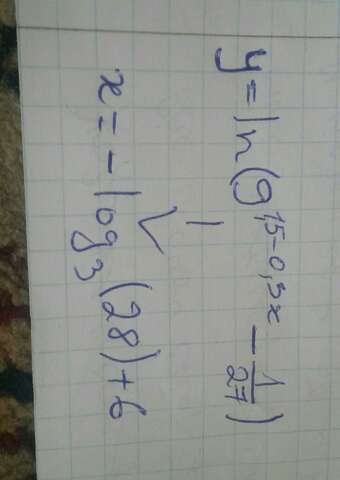 y = ln(9^{1,5-0,5x} - \frac{1}{27})
x = -log_3(28)+6